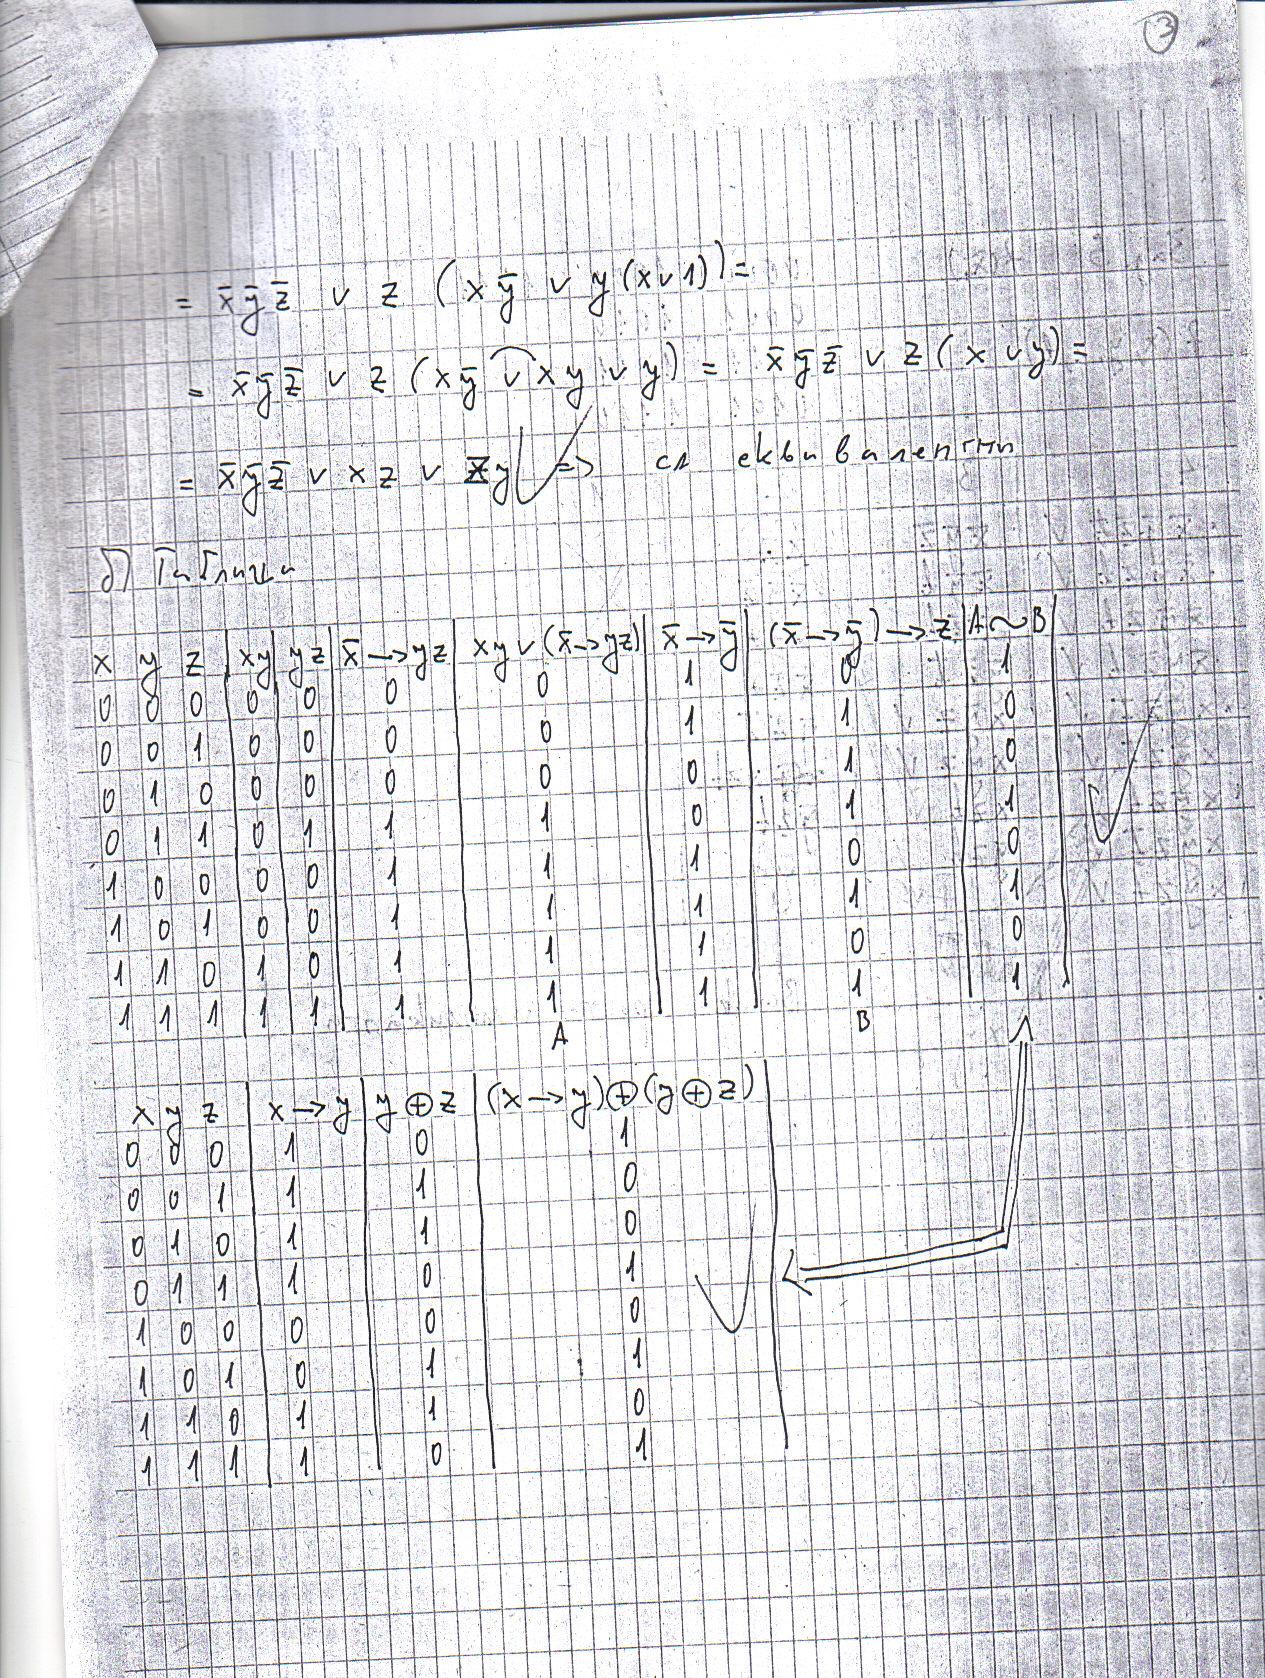 3
= x̄ȳz̄ ∨ z (xȳ ∨ y(x∨1)) =
= x̄ȳz̄ ∨ z (xȳ ∨ xy ∨ y) = x̄ȳz̄ ∨ z(x∨y) =
= x̄ȳz̄ ∨ xz ∨ zy => са еквивалентни
б) Таблици
x y z | xy | yz | x̄→yz | xy∨(x̄→yz) | x̄→ȳ | (x̄→ȳ)→z | A~B
0 0 0 | 0 | 0 | 0 | 0 | 1 | 0 | 1
0 0 1 | 0 | 0 | 0 | 0 | 1 | 1 | 0
0 1 0 | 0 | 0 | 0 | 0 | 0 | 1 | 0
0 1 1 | 0 | 1 | 1 | 1 | 0 | 1 | 1
1 0 0 | 0 | 0 | 1 | 1 | 1 | 0 | 0
1 0 1 | 0 | 0 | 1 | 1 | 1 | 1 | 1
1 1 0 | 1 | 0 | 1 | 1 | 1 | 0 | 0
1 1 1 | 1 | 1 | 1 | 1 | 1 | 1 | 1
A B
x y z | x→y | y⊕z | (x→y)⊕(y⊕z)
0 0 0 | 1 | 0 | 1
0 0 1 | 1 | 1 | 0
0 1 0 | 1 | 1 | 0
0 1 1 | 1 | 0 | 1
1 0 0 | 0 | 0 | 0
1 0 1 | 0 | 1 | 1
1 1 0 | 1 | 1 | 0
1 1 1 | 1 | 0 | 1